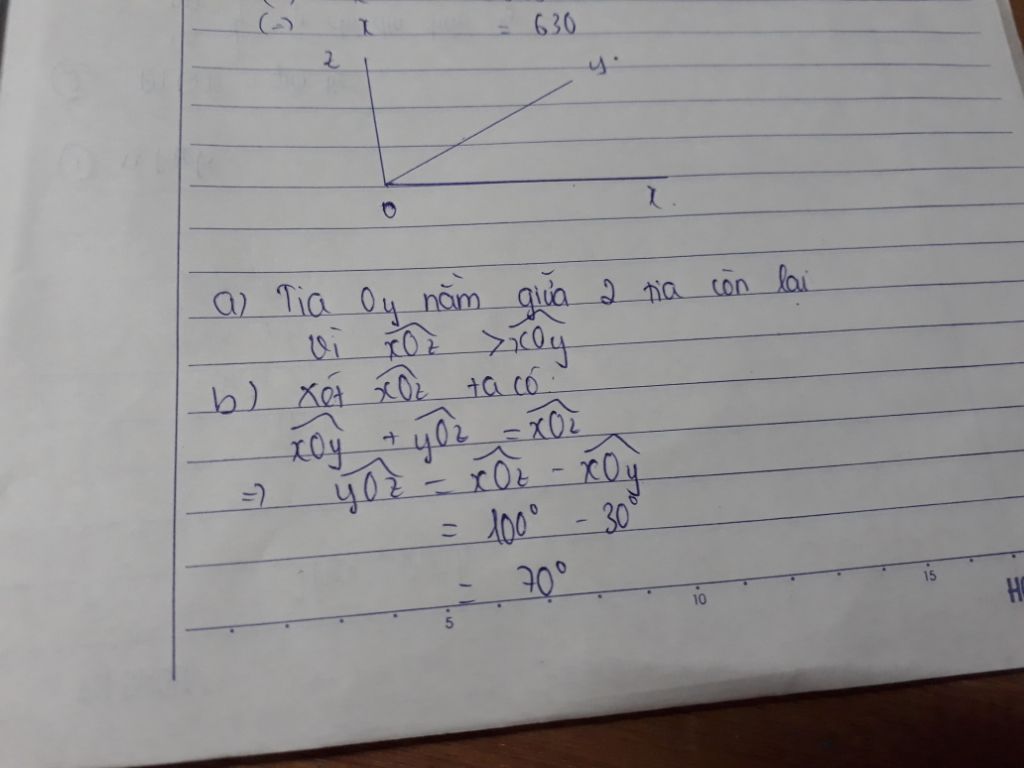 (=) x = 630
z
y
O
x
a) Tia Oy nằm giữa 2 tia còn lại
vì xOz > xOy
b) Xét xOz ta có
xOy + yOz = xOz
=> yOz = xOz - xOy
= 100° - 30°
= 70°
5 10 15